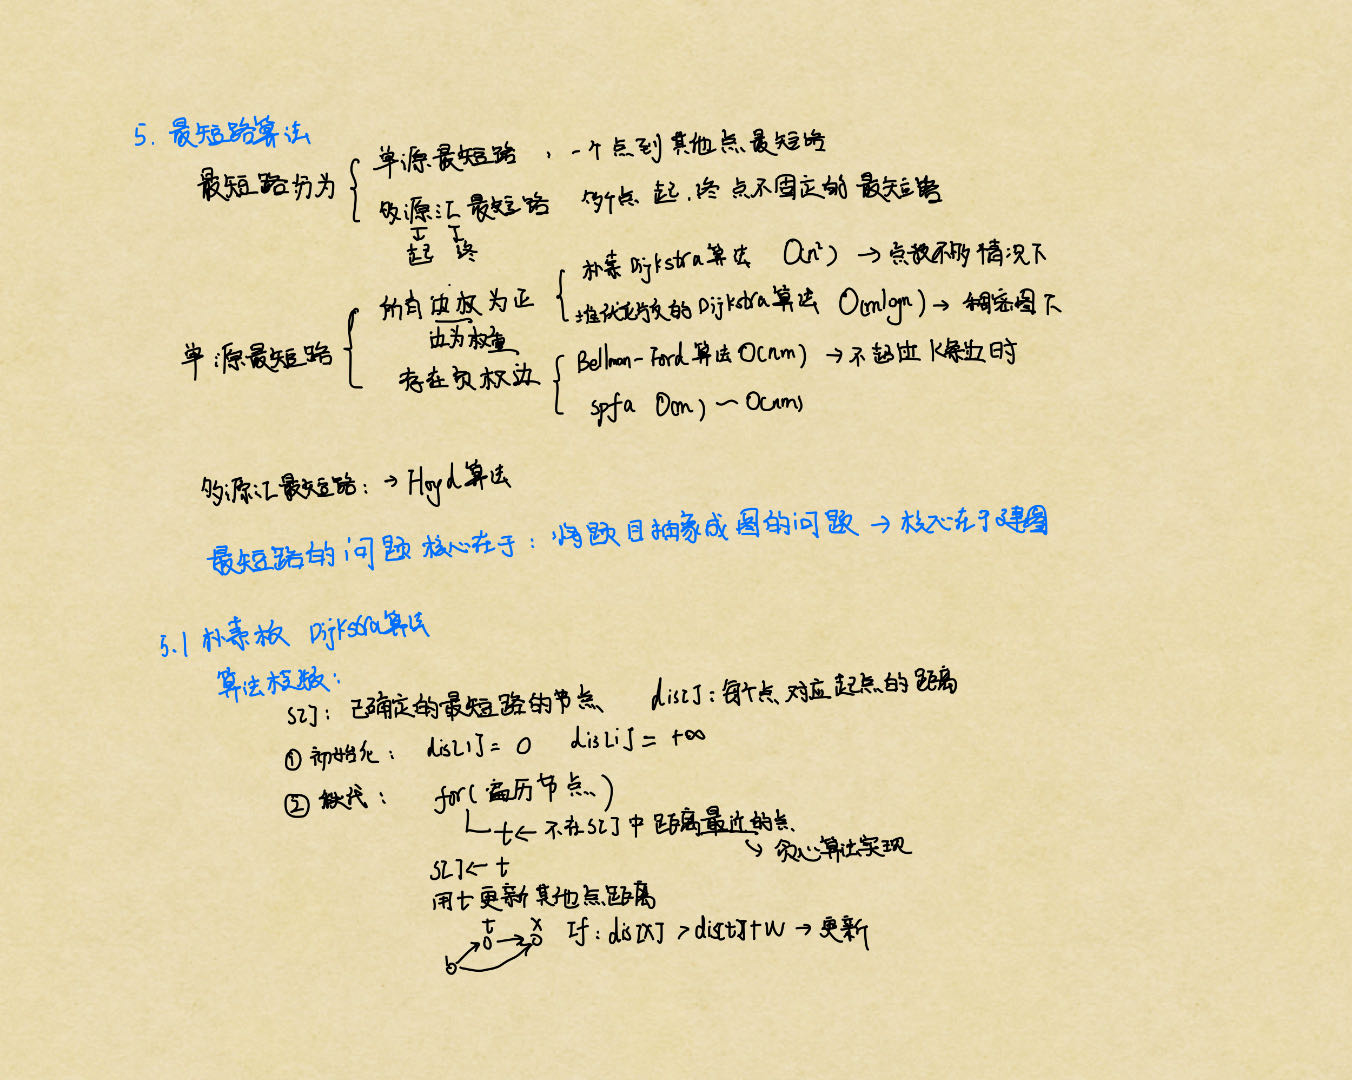 5. 最短路算法
最短路分为
单源最短路 , 一个点到其他点最短路
多源汇最短路 多个点 起.终点不固定的最短路
起 终
单源最短路
所有边权为正
边为权重
朴素Dijkstra算法 O(n²) → 点数不多情况下
堆优化版的Dijkstra算法 O(mlogn) → 稠密图下
存在负权边
Bellman-Ford算法 O(nm) → 不超过K条边时
spfa O(m) ~ O(nm)
多源汇最短路: → Floyd算法
最短路的问题核心在于: 将题目抽象成图的问题 → 核心在于建图
5.1 朴素版 Dijkstra算法
算法模版:
S[]: 已确定的最短路的节点 dis[]: 每个点对应起点的距离
① 初始化: dis[1] = 0 dis[i] = +∞
② 迭代: for(遍历节点)
t ← 不在S[]中距离最近的点
→ 贪心算法实现
S[] ← t
用t更新其他点距离
t x If: dis[x] > dis[t]+w → 更新
1